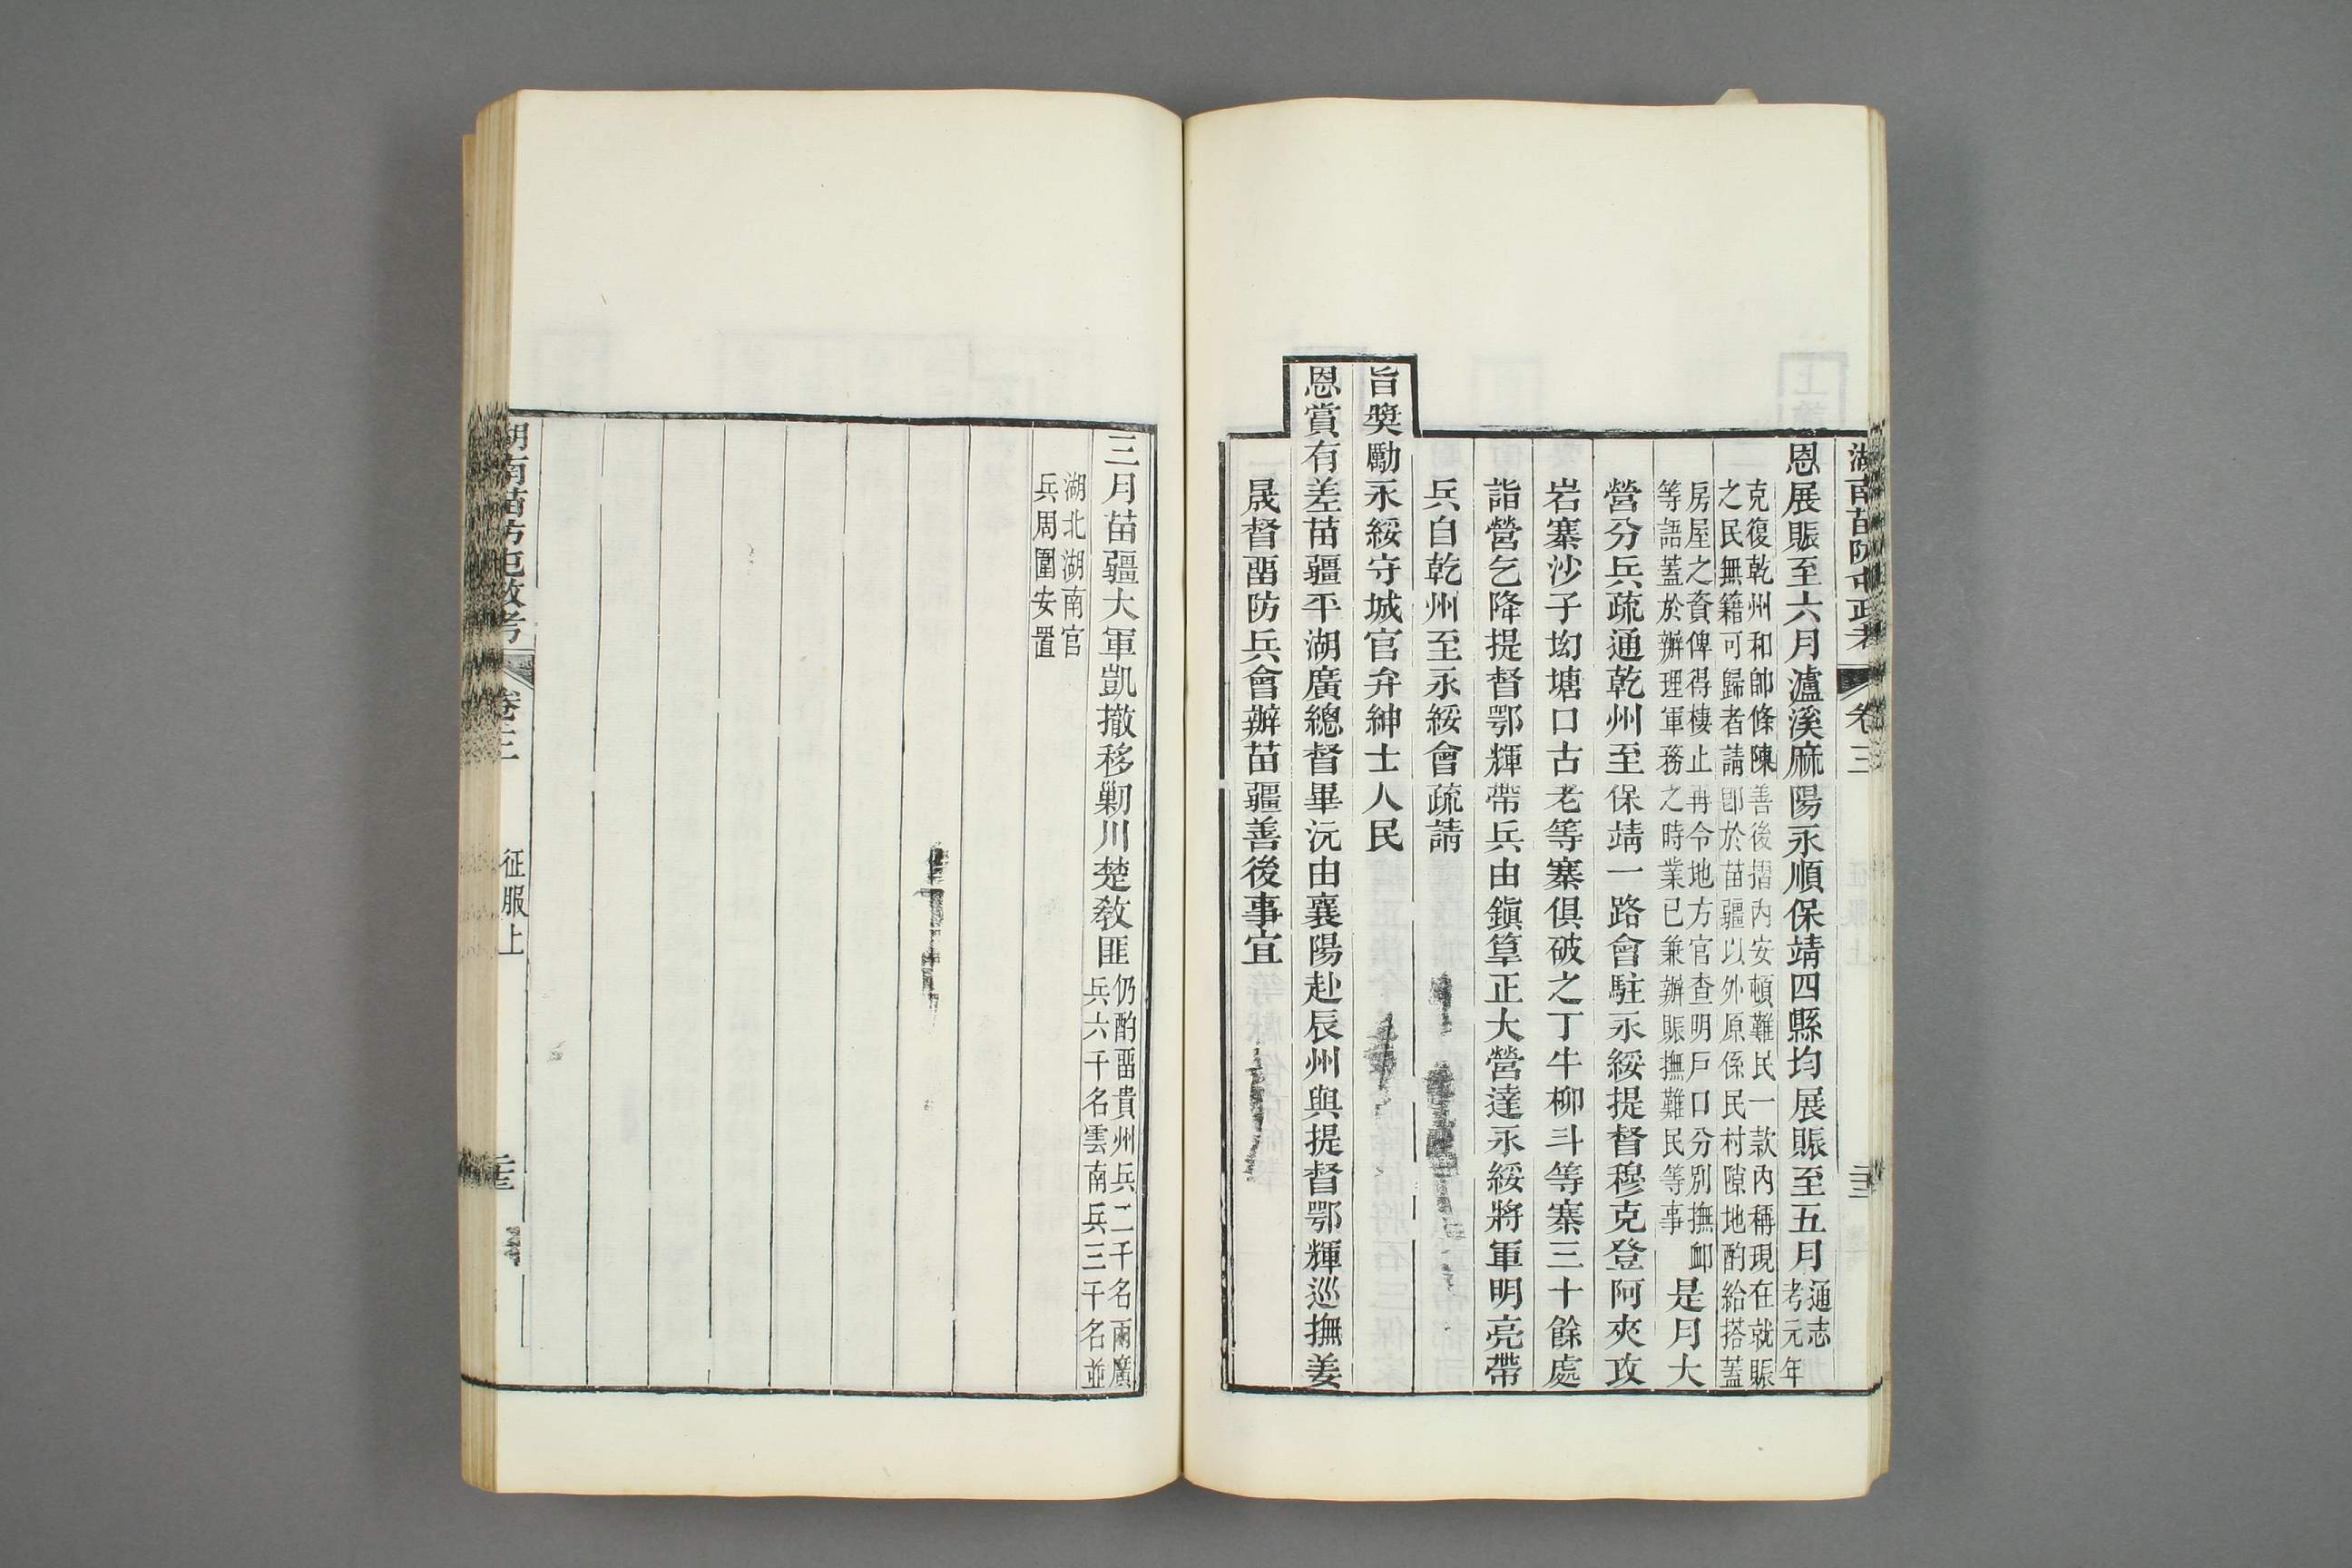 湖南苗防屯政考 卷三
恩展賑至六月瀘溪麻陽永順保靖四縣均展賑至五月通志
考元年
克復乾州和帥條陳善後摺內安頓難民一款內稱現在就賑
之民無籍可歸者請卽於苗疆以外原係民村隙地酌給搭蓋
房屋之資俾得棲止再令地方官查明戶口分別撫卹
等語蓋於辦理軍務之時業已兼辦賑撫難民等事
是月大
營分兵疏通乾州至保靖一路會駐永綏提督穆克登阿夾攻
岩寨沙子㘭塘口古老等寨俱破之丁牛柳斗等寨三十餘處
詣營乞降提督鄂輝帶兵由鎭筸正大營達永綏將軍明亮帶
兵自乾州至永綏會疏請
旨獎勵永綏守城官弁紳士人民
恩賞有差苗疆平湖廣總督畢沅由襄陽赴辰州與提督鄂輝巡撫姜
晟督畱防兵會辦苗疆善後事宜
三月苗疆大軍凱撤移剿川楚敎匪仍酌畱貴州兵二千名兩廣
兵六千名雲南兵三千名並
湖北湖南官
兵周圍安置
湖南苗防屯政考 卷三 征服上